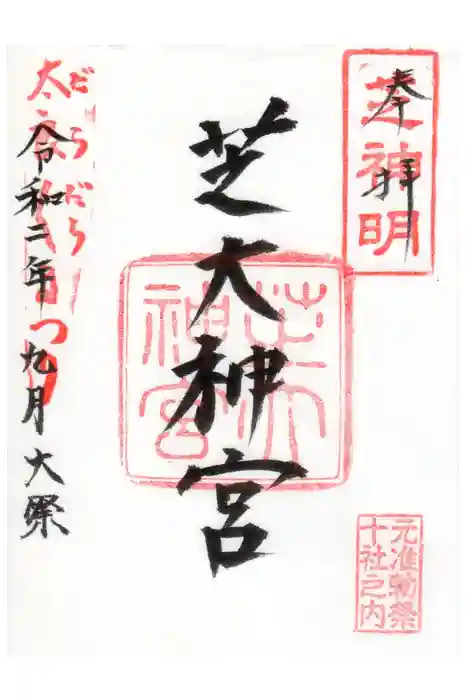 奉拝
芝神明
芝大神宮
芝大神宮
元准勅祭
十社之内
だらだら
令和二年九月大祭